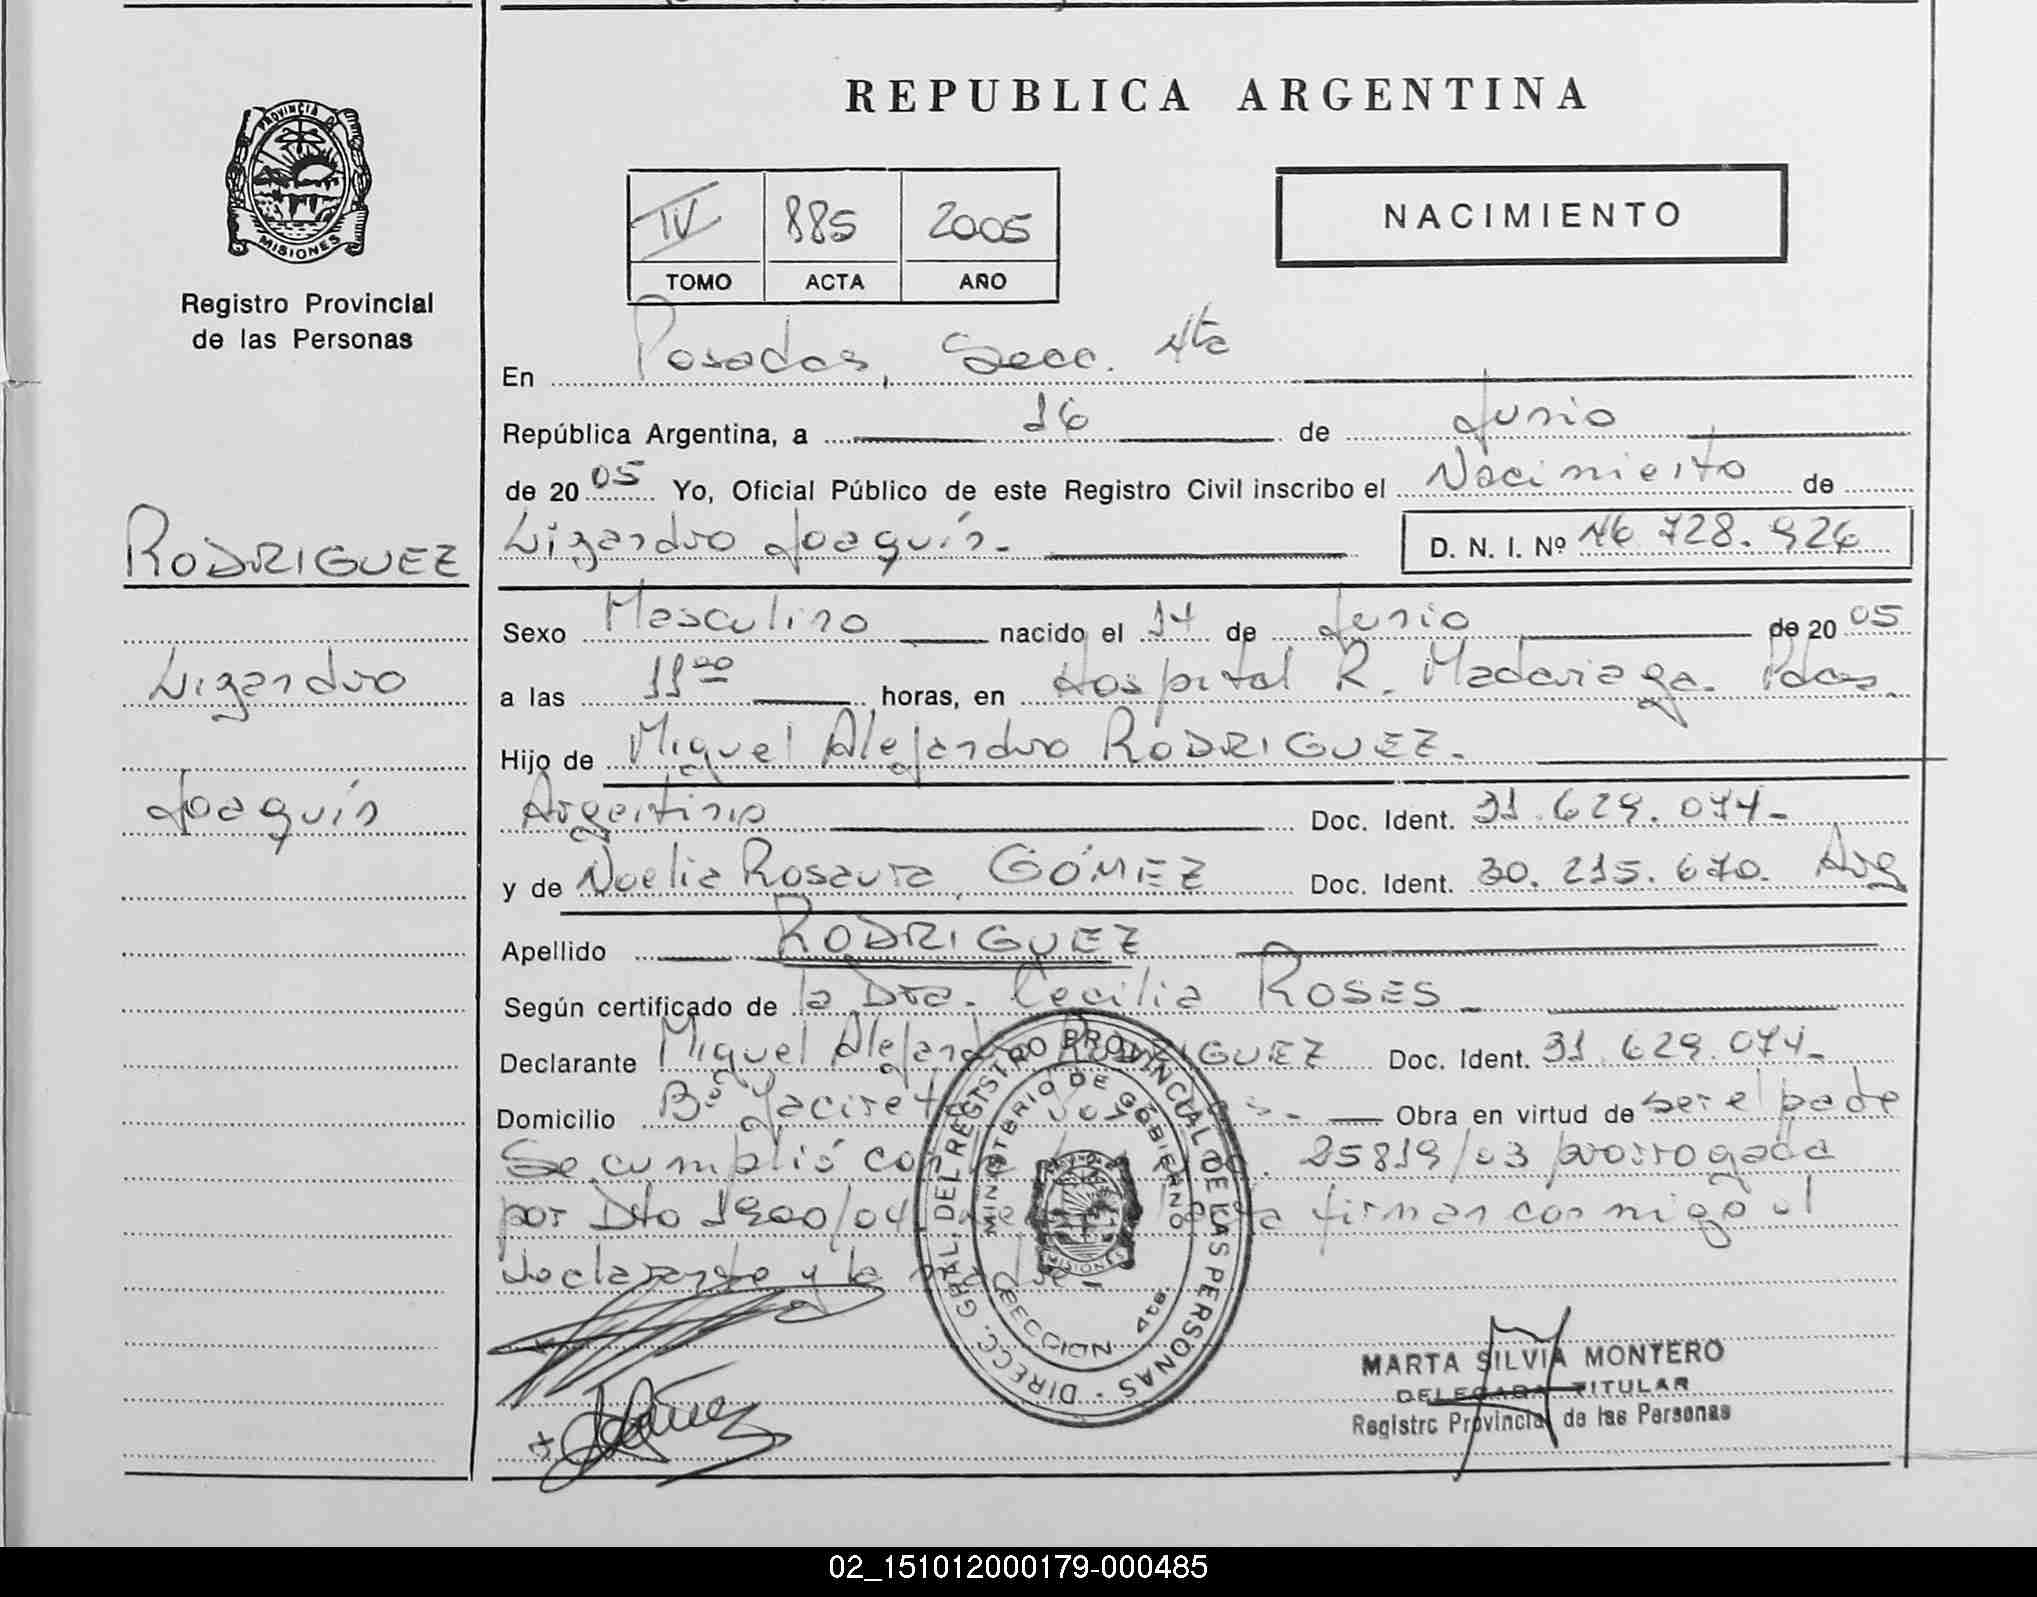 PROVINCIA DE
MISIONES
Registro Provincial
de las Personas
RODRIGUEZ
Lizandro
Joaquín
REPUBLICA ARGENTINA
IV 885 2005
TOMO ACTA AÑO
NACIMIENTO
En Posadas, Secc. 4ta
República Argentina, a 16 de Junio
de 2005 Yo, Oficial Público de este Registro Civil inscribo el Nacimiento de
Lizandro Joaquín.- D. N. I. Nº 46.728.926
Sexo Masculino nacido el 14 de Junio de 2005
a las 11 00 horas, en Hospital R. Madariaga. Pdas.
Hijo de Miguel Alejandro RODRIGUEZ.
Argentino Doc. Ident. 31.629.074.-
y de Noelia Rosaura GÓMEZ Doc. Ident. 30.215.670. Arg
Apellido RODRIGUEZ
Según certificado de la Dra. Cecilia ROSES
Declarante Miguel Alejandro RODRIGUEZ Doc. Ident. 31.629.074.-
Domicilio Bº Yaciretá Obra en virtud de ser el padre
Se cumplió con 25819/03 prorrogada
por Dto 1900/04 firman conmigo el
declarante y la madre.-
DIRECC. GRAL. DEL REGISTRO PROVINCIAL DE LAS PERSONAS
MINISTERIO DE GOBIERNO
MISIONES
SECCION 4ta.
MARTA SILVIA MONTERO
DELEGADA TITULAR
Registro Provincial de las Personas
02_151012000179-000485